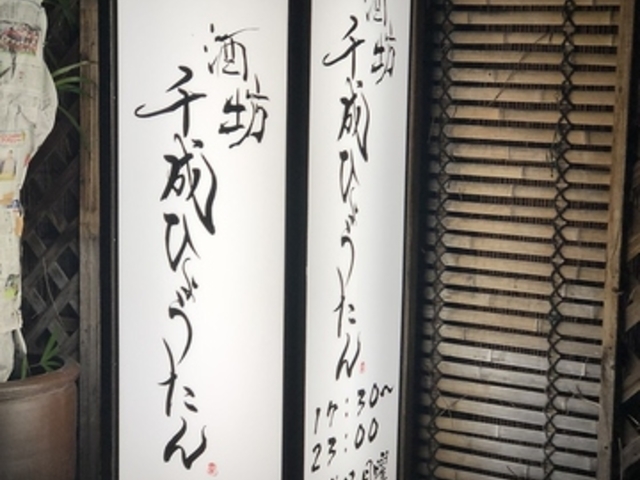 酒坊
千成ひょうたん
酒坊
千成ひょうたん
17:30～
23:00